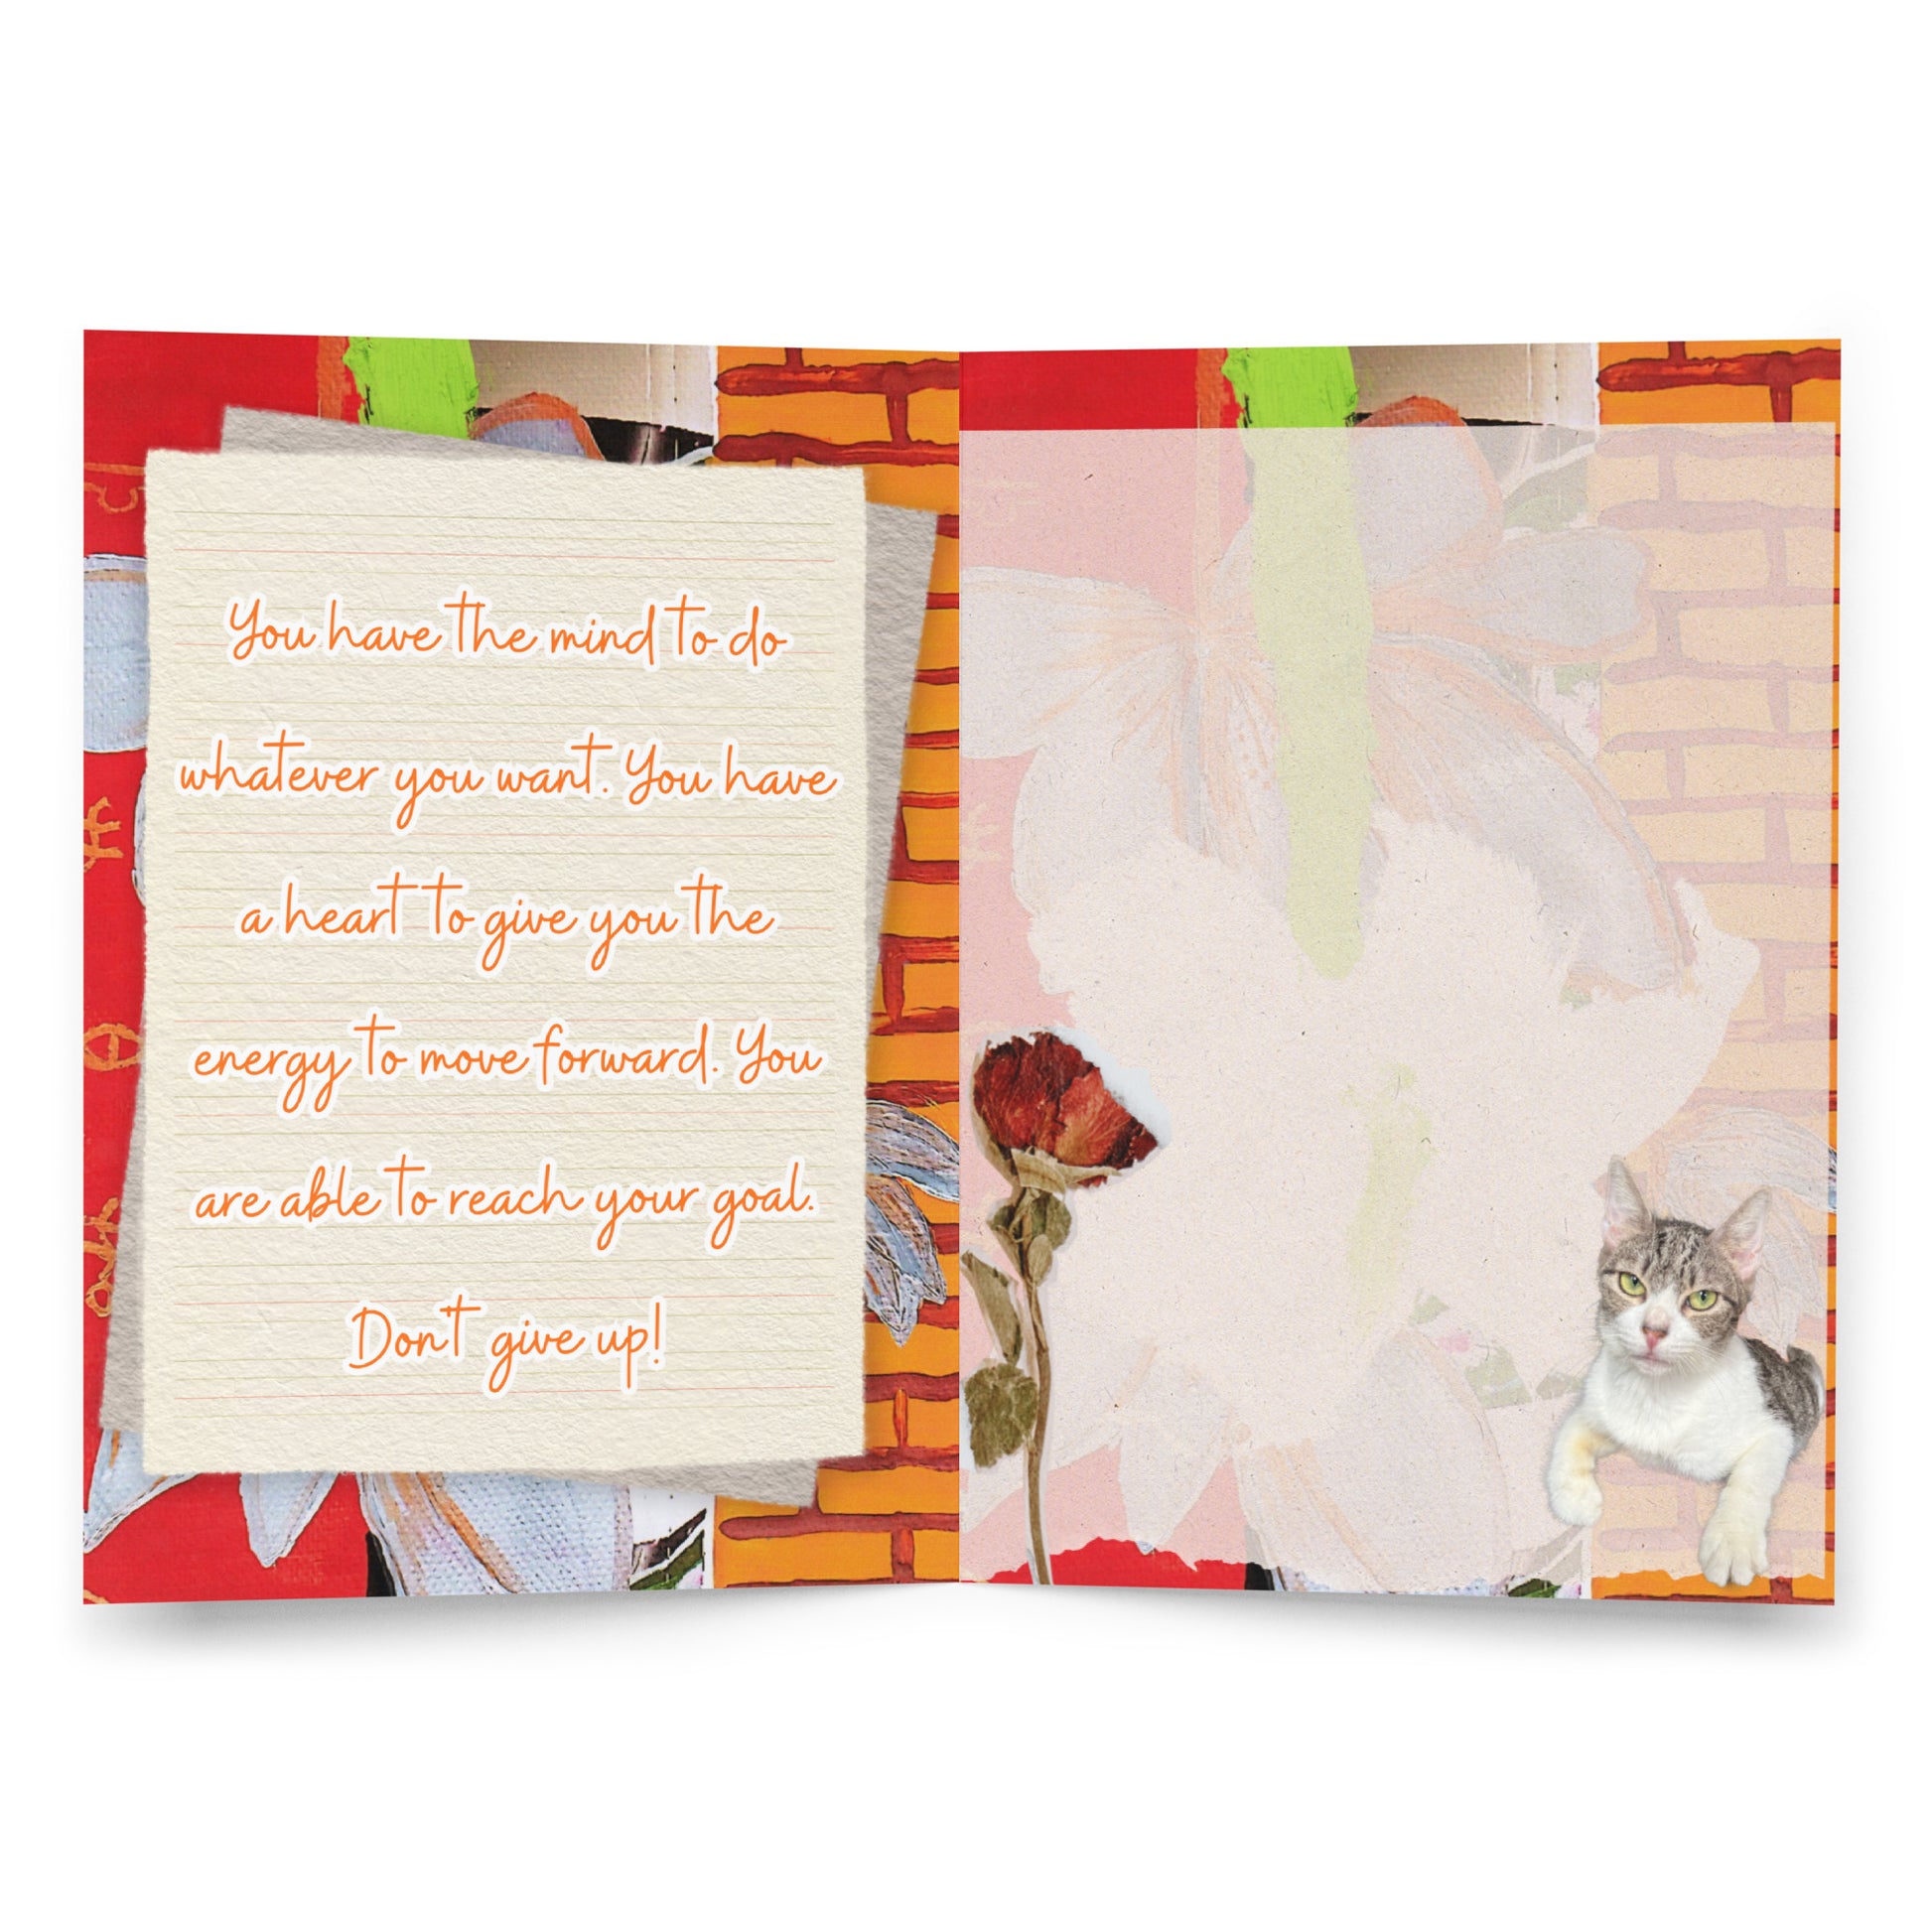 You have the mind to do
whatever you want. You have
a heart to give you the
energy to move forward. You
are able to reach your goal.
Don't give up!